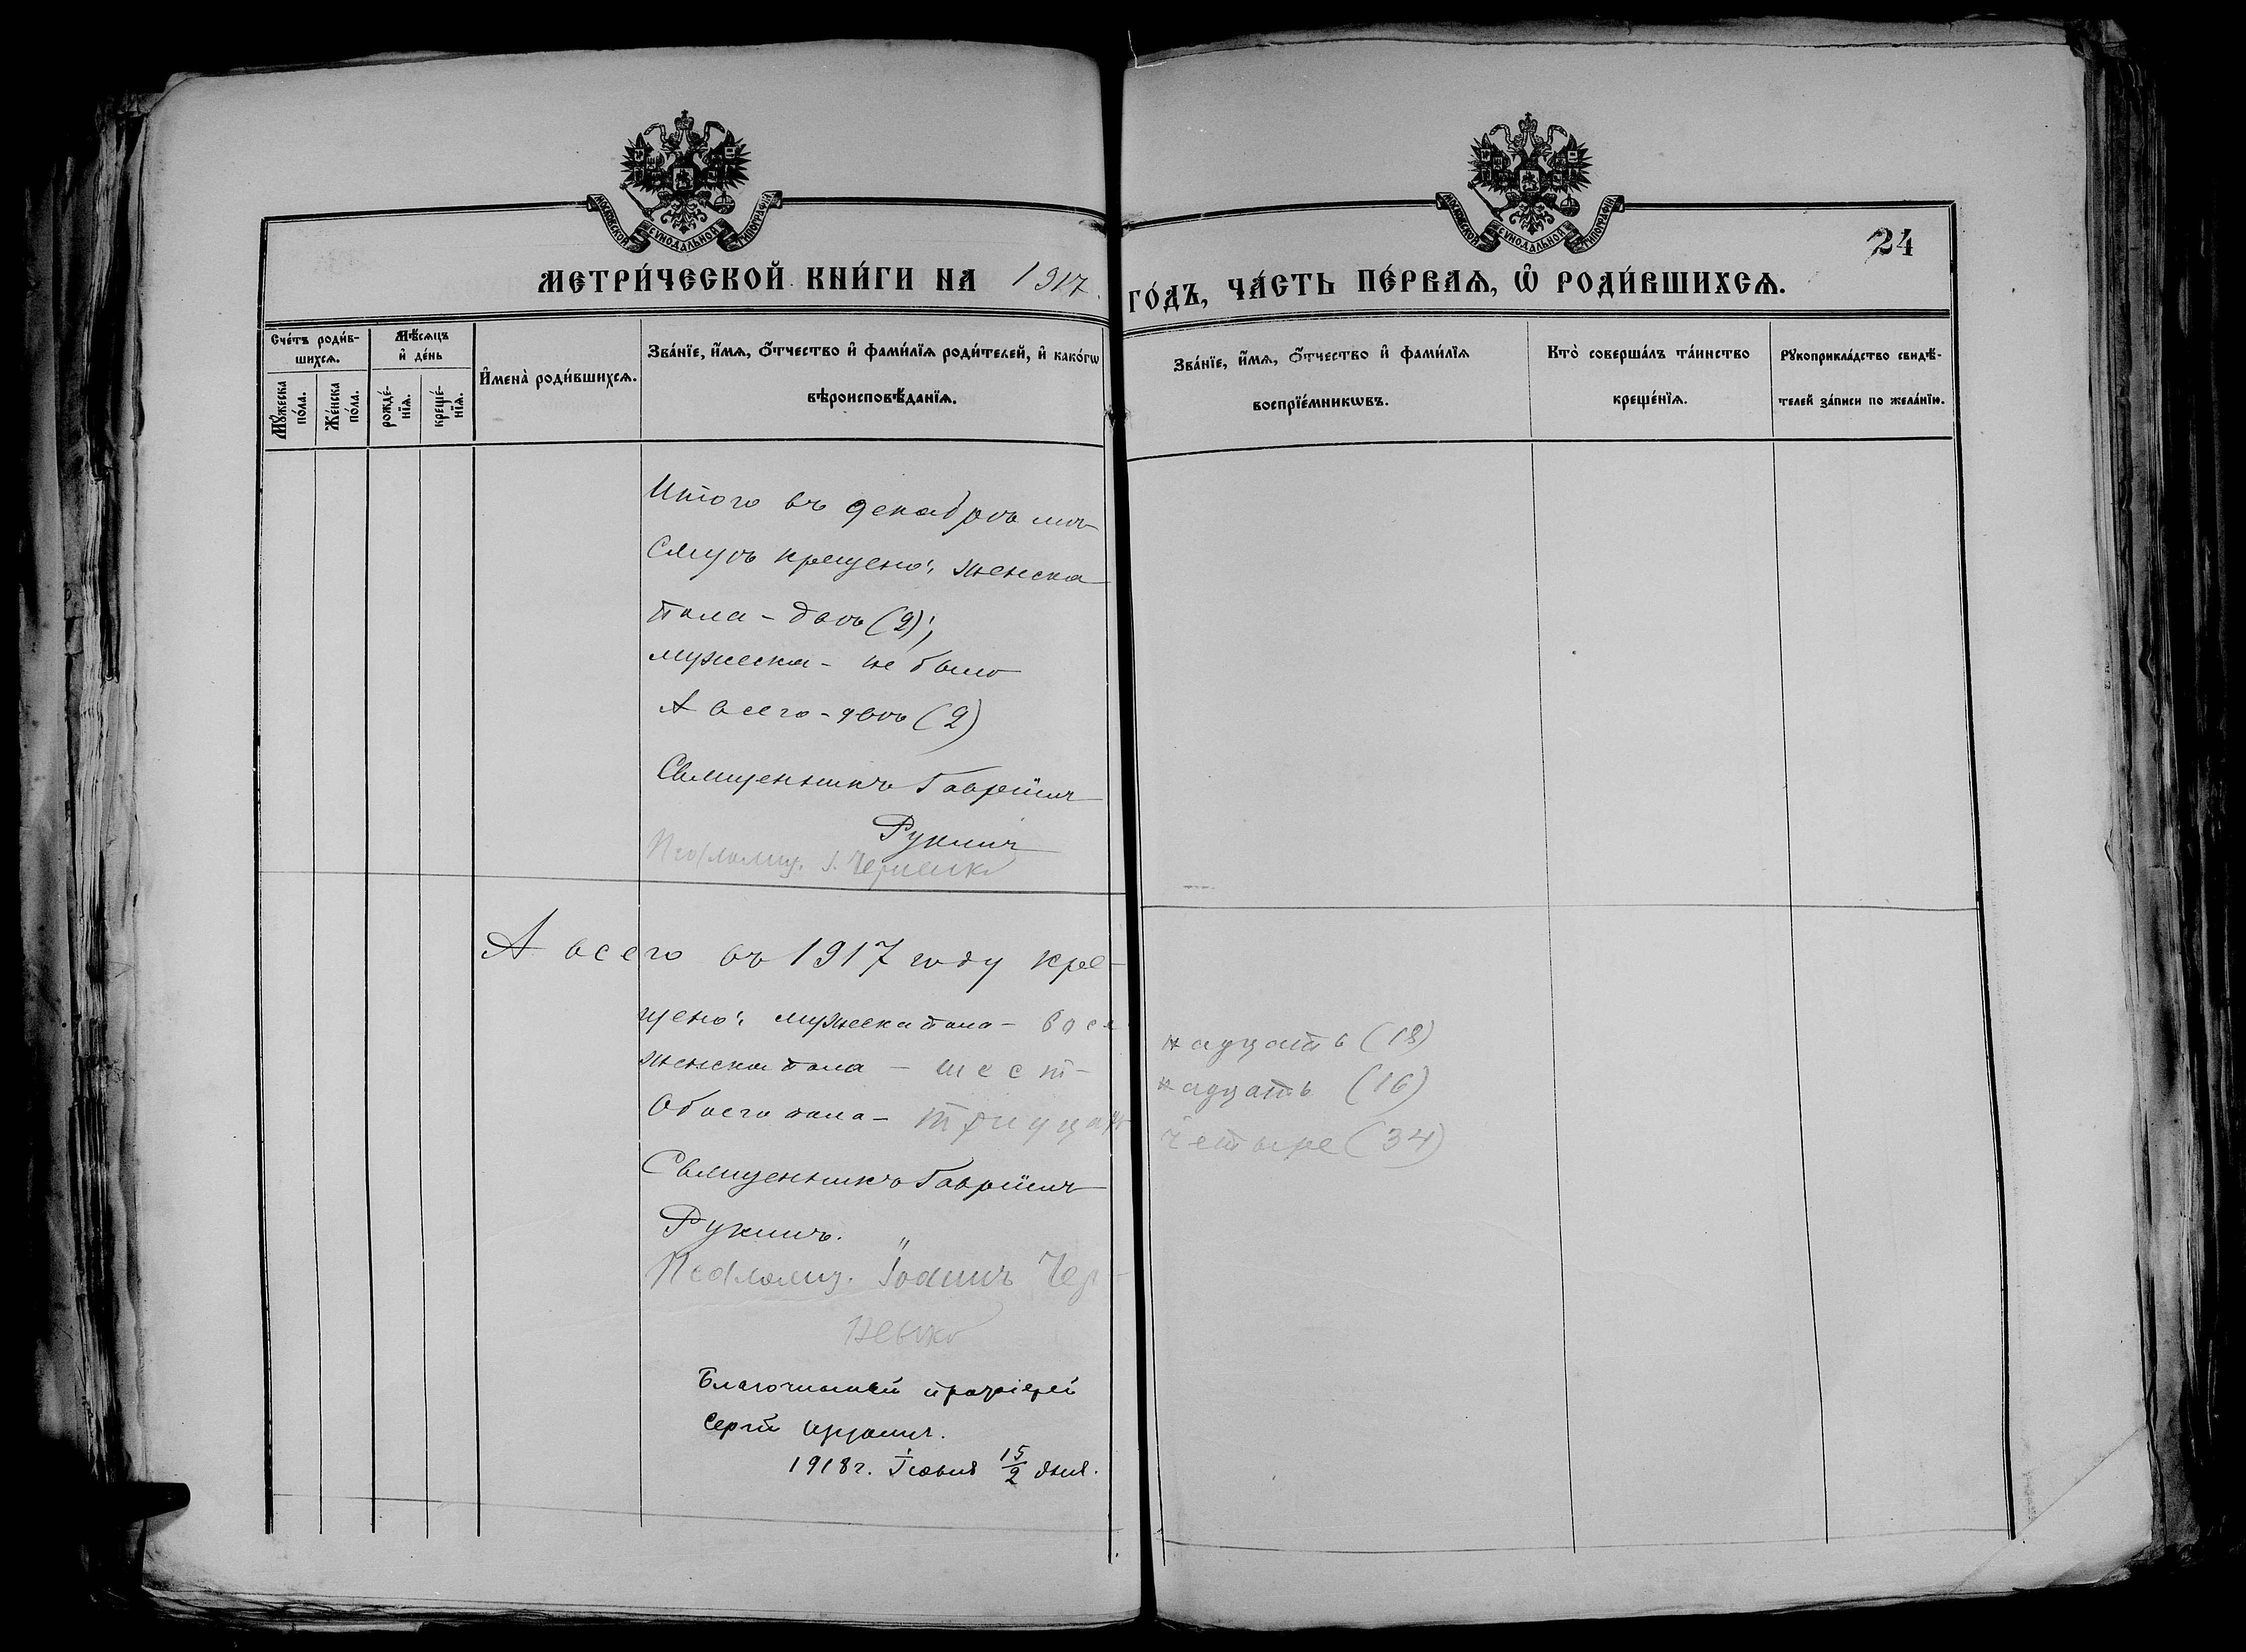 МОСКОВСКОЙ СѴНОДАЛЬНОЙ ТИПОГРАФІИ
МОСКОВСКОЙ СѴНОДАЛЬНОЙ ТИПОГРАФІИ
24
МЕТРИ́ЧЕСКОЙ КНИ́ГИ НА 1917 ГО́ДЪ, ЧА́СТЬ ПЕ́РВАѦ, Ѡ҆ РОДИ́ВШИХСѦ.
Сче́тъ роди́в-
шихсѧ.
Мꙋ́жеска
по́ла.
Же́нска
по́ла.
Мѣ́сѧцъ
и҆ де́нь
рожде́-
нїѧ.
креще́-
нїѧ.
И҆мена̀ роди́вшихсѧ.
Зва́нїе, и҆́мѧ, ѻ҆́тчество и҆ фами́лїѧ роди́телей, и҆ како́гѡ
вѣроисповѣ́данїѧ.
Зва́нїе, и҆́мѧ, ѻ҆́тчество и҆ фами́лїѧ
воспрїе́мникѡвъ.
Кто̀ соверша́лъ та́инство
креще́нїѧ.
Рꙋкоприкла́дство свидѣ́-
телей за́писи по жела́нїю.
Итого въ декабрѣ мѣ-
сяцѣ крещено: женска
пола - двѣ (2);
мужеска - не было
А всего - двѣ (2)
Священникъ Гавріилъ
Рукинъ
Псаломщ. І. Черненко
А всего въ 1917 году кре-
щено: мужеска пола - восемнадцать (18)
женска пола - шестнадцать (16)
Обоего пола - тридцать четыре (34)
Священникъ Гавріилъ
Рукинъ.
Псаломщ. Іоаннъ Чер-
ненко
Благочинный протоіерей
Сергій
1918 г. Іюня 15/2 дня.